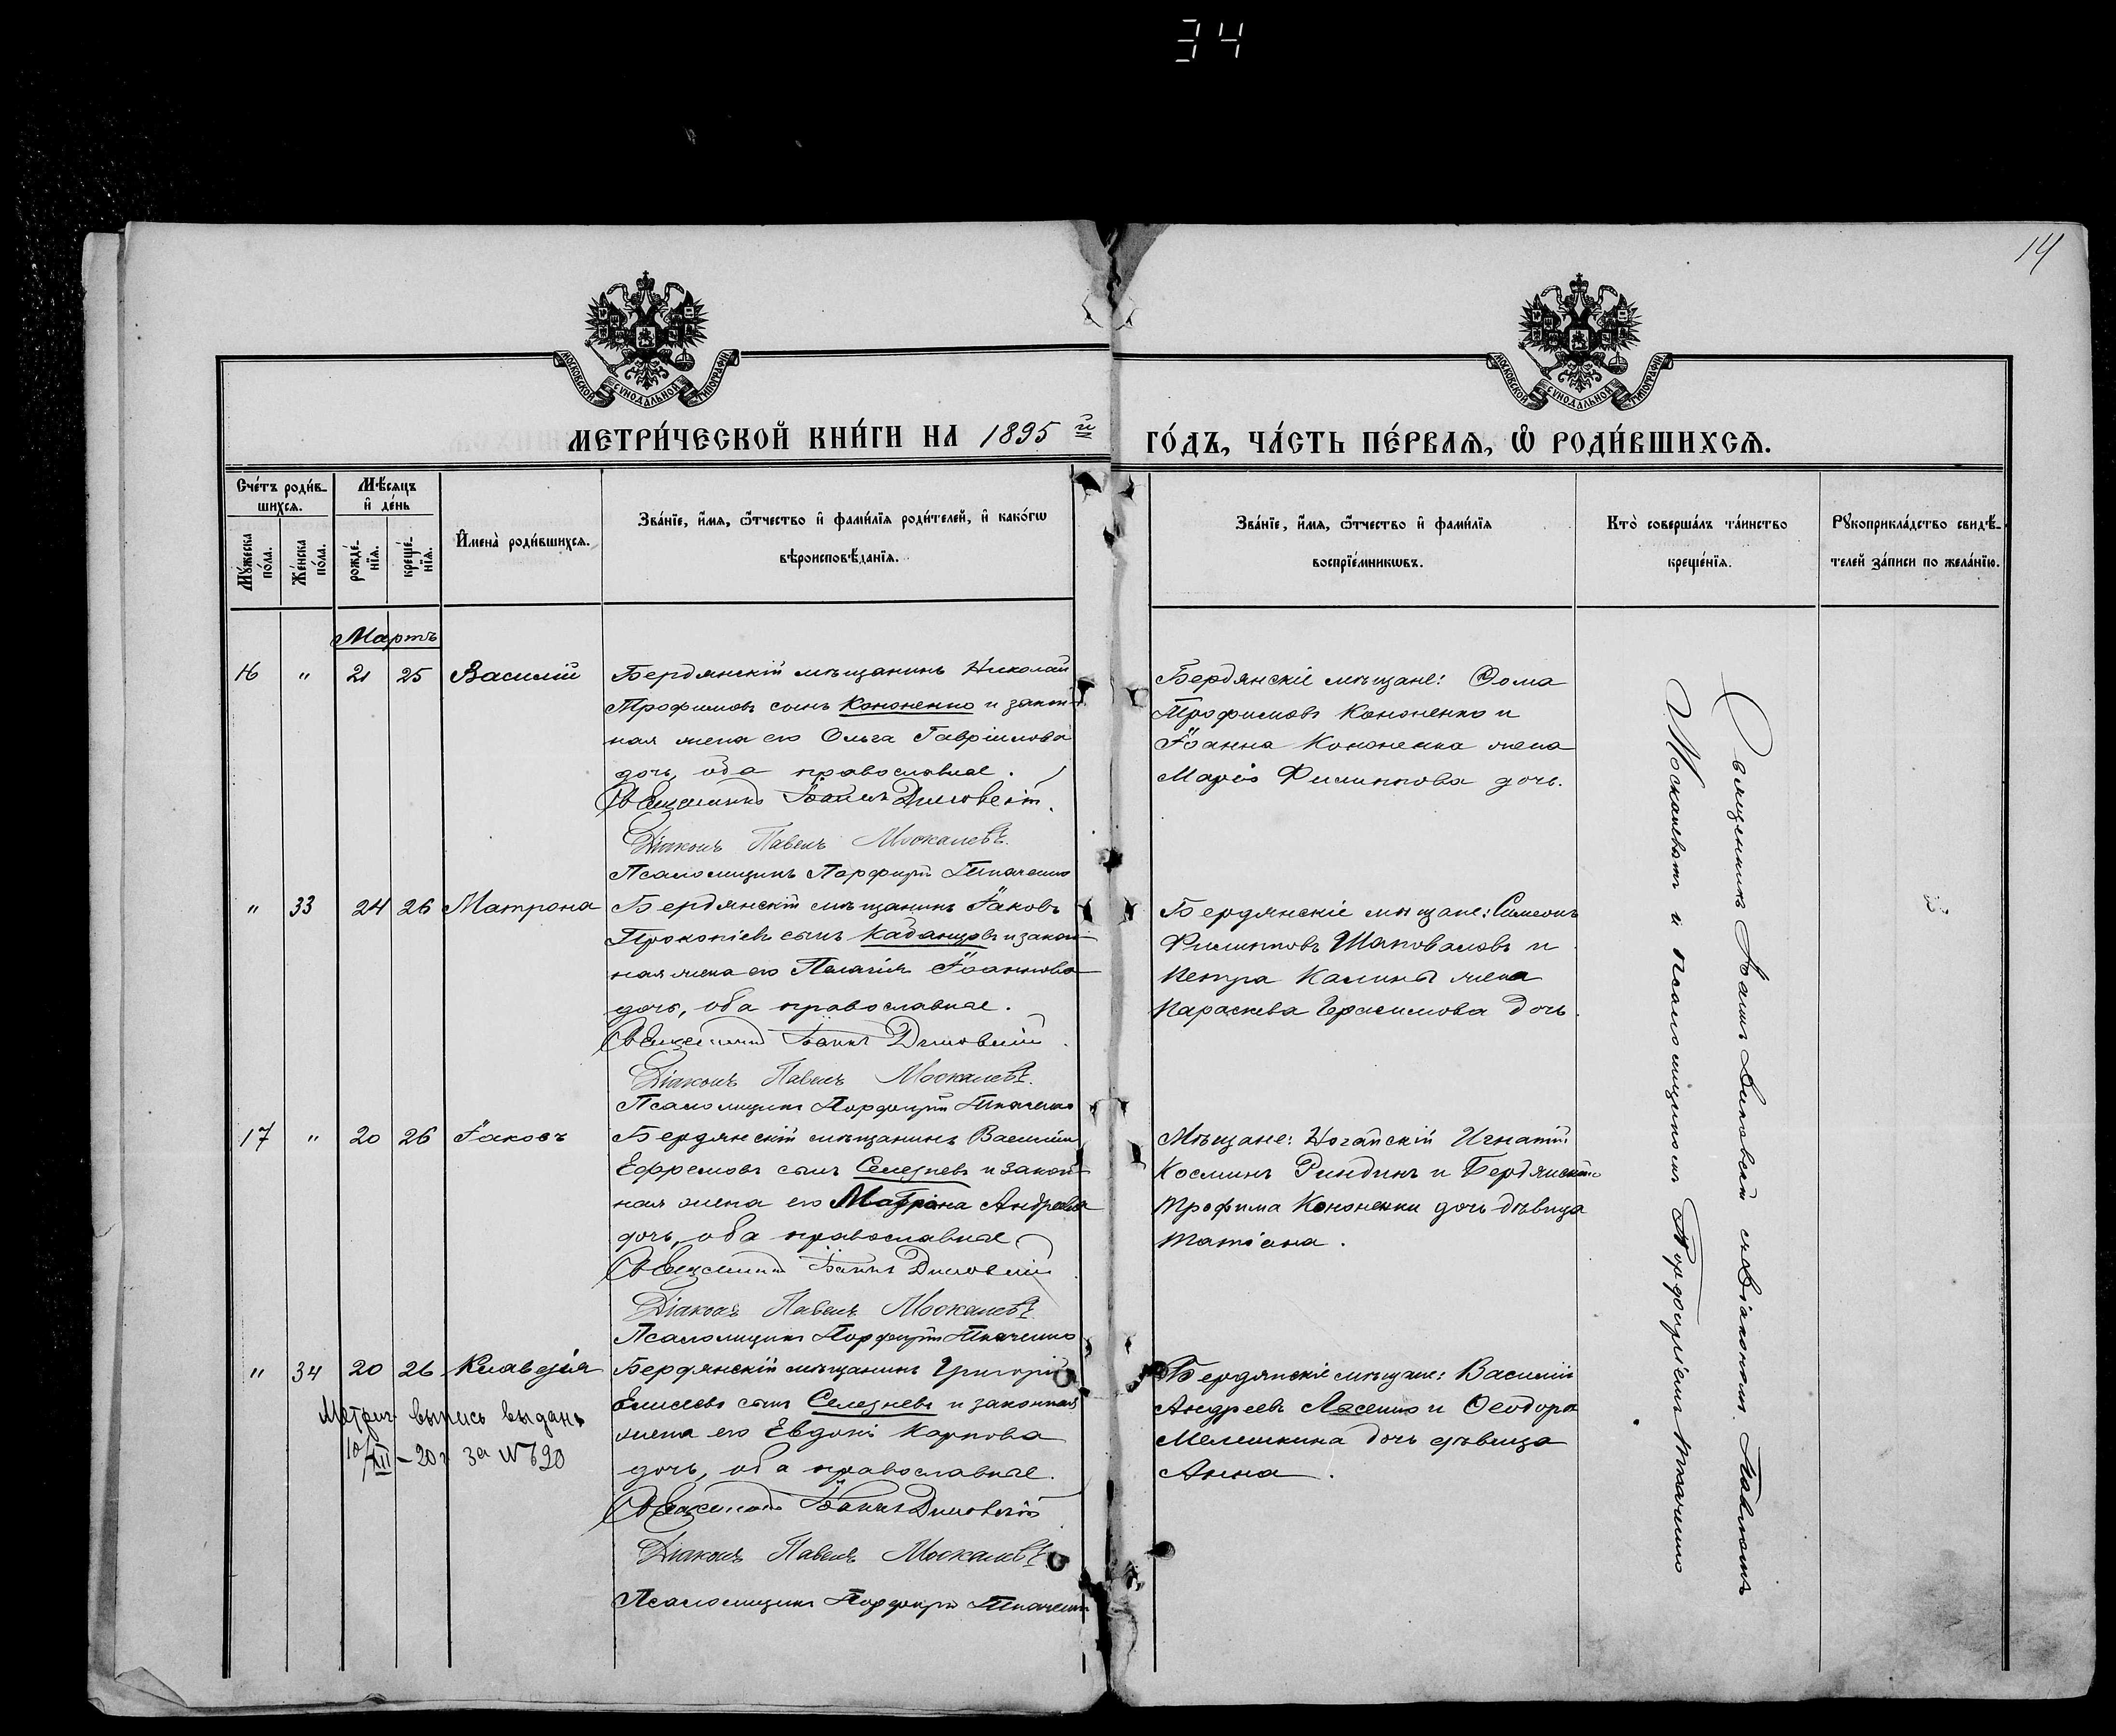 34
14
МОСКОВСКОЙ СУНОДАЛЬНОЙ ТИПОГРАФІИ
МОСКОВСКОЙ СУНОДАЛЬНОЙ ТИПОГРАФІИ
МЕТРИ́ЧЕСКОЙ КНИ́ГИ НА 1895 й
ГО́ДЪ, ЧА́СТЬ ПЕ́РВАѦ, Ѽ РОДИ́ВШИХСѦ.
Сче́тъ роди́в-
шихсѧ.
Мꙋ́жеска по́ла.
Же́нска по́ла.
Мѣ́сѧцъ
и҆ де́нь
рожде́-нїѧ.
креще́-нїѧ.
И҆мена̀ роди́вшихсѧ.
Зва́нїе, и҆́мѧ, ѻ҆́тчество и҆ фами́лїѧ роди́телей, и҆ како́гѡ
вѣроисповѣ́данїѧ.
Зва́нїе, и҆́мѧ, ѻ҆́тчество и҆ фами́лїѧ
воспрїе́мникѡвъ.
Кто̀ соверша́лъ та́инство
креще́нїѧ.
Рꙋкоприкла́дство свидѣ́-
телей за́писи по жела́нїю.
Мартъ
16 " 21 25 Василій
Бердянскій мѣщанинъ Николай
Трофимовъ сынъ Кононенко и закон-
ная жена его Ольга Гавріилова
дочь, оба православные.
Священникъ Іоаннъ
Діаконъ Павелъ Москалевъ.
Псаломщикъ Порфирій Ткаченко
Бердянскіе мѣщане: Ѳома
Трофимовъ Кононенко и
Іоанна Кононенка жена
Марія Филиппова дочь.
" 33 24 26 Матрона
Бердянскій мѣщанинъ Іаковъ
Прокопіевъ сынъ Кабанцовъ и закон-
ная жена его Пелагія Іоаннова
дочь, оба православные.
Священникъ Іоаннъ
Діаконъ Павелъ Москалевъ.
Псаломщикъ Порфирій Ткаченко
Бердянскіе мѣщане: Симеонъ
Филипповъ Шаповаловъ и
Петра Калины жена
Параскева Герасимова дочь.
17 " 20 26 Іаковъ
Бердянскій мѣщанинъ Василій
Ефремовъ сынъ Селезневъ и закон-
ная жена его Матрона Андреева
дочь, оба православные
Священникъ Іоаннъ
Діаконъ Павелъ Москалевъ.
Псаломщикъ Порфирій Ткаченко
Мѣщане: Ногайскій Игнатій
Косминъ Риндинъ и Бердянскаго
Трофима Кононенки дочь дѣвица
Татіана.
" 34 20 26 Клавдія
Метрич выпись выдана
10/XII – 20 г за № 620
Бердянскій мѣщанинъ Григорій
Елисеевъ сынъ Селезневъ и законная
жена его Евдокія Карпова
дочь, оба православные.
Священникъ Іоаннъ
Діаконъ Павелъ Москалевъ
Псаломщикъ Порфирій Ткаченко
Бердянскіе мѣщане: Василій
Андреевъ и Ѳеодора
Мелешкина дочь дѣвица
Анна.
Священникъ Іоаннъ съ діакономъ Павломъ
Москалевымъ и псаломщикомъ Порфиріемъ Ткаченко